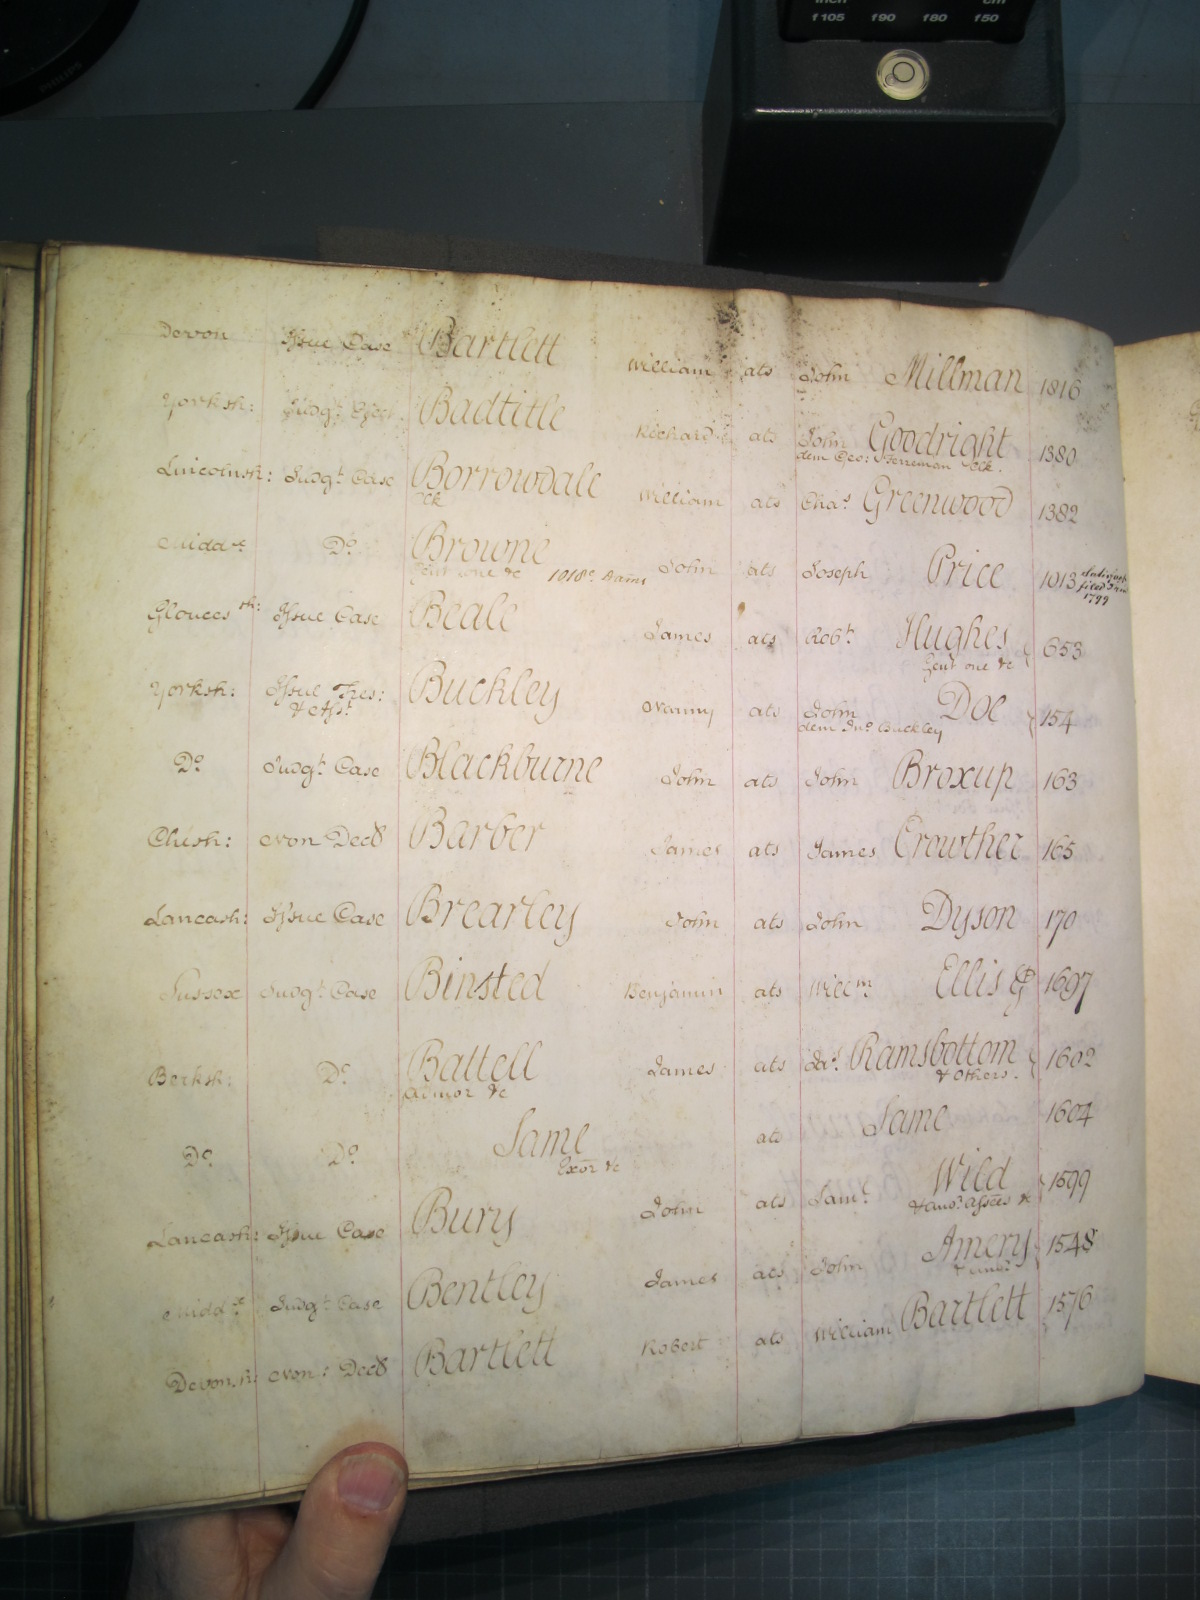 inch cm
f105 f90 f80 f50
PHILIPS
Devon Issue Case Bartlett William ats John Millman 1816
Yorksh: Judgt. Eject Badtitle Richard ats John Goodright 1380
dem Geo: Clk.
Lincolnsh: Judgt. Case Borrowdale William ats Chas. Greenwood 1382
Clk
Middx Do. Browne John ats Joseph Price 1013
Gent one &c 1018
filed
1799
Gloucessh: Issue Case Beale James ats Robt. Hughes 653
Gent one &c
Yorksh: Issue Tres: Buckley ats John Doe 154
& Asst. dem Jno. Buckley
Do. Judgt. Case Blackburne John ats John Broxup 163
Chesh: Non Decd Barber James ats James Crowther 165
Lancash: Issue Case Brearley John ats John Dyson 170
Sussex Judgt. Case Binsted Benjamin ats Willm. Ellis 1697
Berksh: Do. Battell James ats Jas. Ramsbottom 1602
Admor &c & Others.
Do. Do. Same ats Same 1604
Exor &c
Lancash: Issue Case Bury John ats Saml. Wild 1599
& anor. Assees &c
Middx Judgt. Case Bentley James ats John Amery 1548
& anor.
Devonsh: Non: Decd Bartlett Robert ats William Bartlett 1576